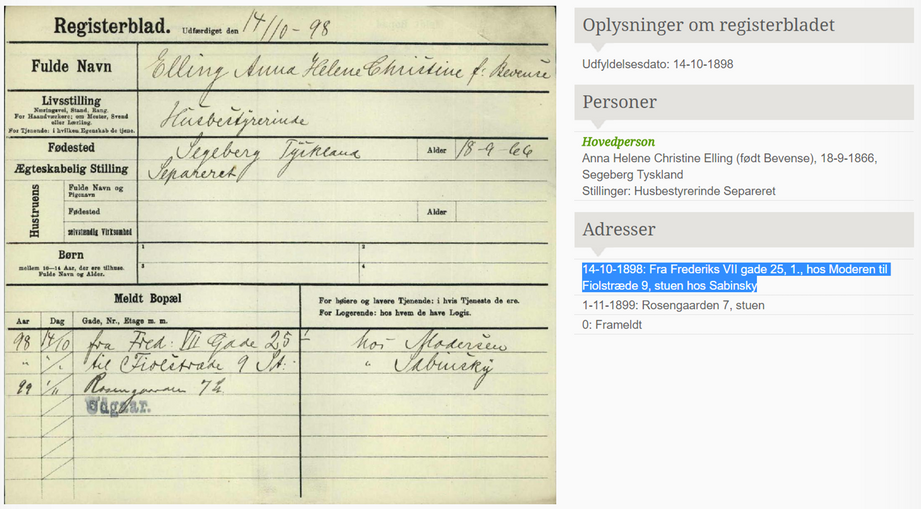 Registerblad. Udfærdiget den 14/10-98
Fulde Navn Elling Anna Helene Christine f: Bevense
Livsstilling
Næringsvej, Stand, Rang.
For Haandværkere; om Mester, Svend
eller Lærling.
For Tjenende: i hvilken Egenskab de tjene.
Husbestyrerinde
Fødested Segeberg Tyskland Alder 18-9-66
Ægteskabelig Stilling Separeret
Hustruens
Fulde Navn og
Pigenavn
Fødested Alder
selvstændig Virksomhed
Børn
mellem 10–14 Aar, der ere tilhuse.
Fulde Navn og Alder.
1 2
3 4
Meldt Bopæl
For højere og lavere Tjenende: i hvis Tjeneste de ere.
For Logerende: hos hvem de have Logis.
Aar Dag Gade, Nr., Etage m. m.
98 14/10 fra Fred: VII Gade 25 1 hos Moderen
" " til Fiolstræde 9 St: " Sabinsky
99 1/11 Rosengaarden 7 St.
Udgaar.
Oplysninger om registerbladet
Udfyldelsesdato: 14-10-1898
Personer
Hovedperson
Anna Helene Christine Elling (født Bevense), 18-9-1866,
Segeberg Tyskland
Stillinger: Husbestyrerinde Separeret
Adresser
14-10-1898: Fra Frederiks VII gade 25, 1., hos Moderen til
Fiolstræde 9, stuen hos Sabinsky
1-11-1899: Rosengaarden 7, stuen
0: Frameldt